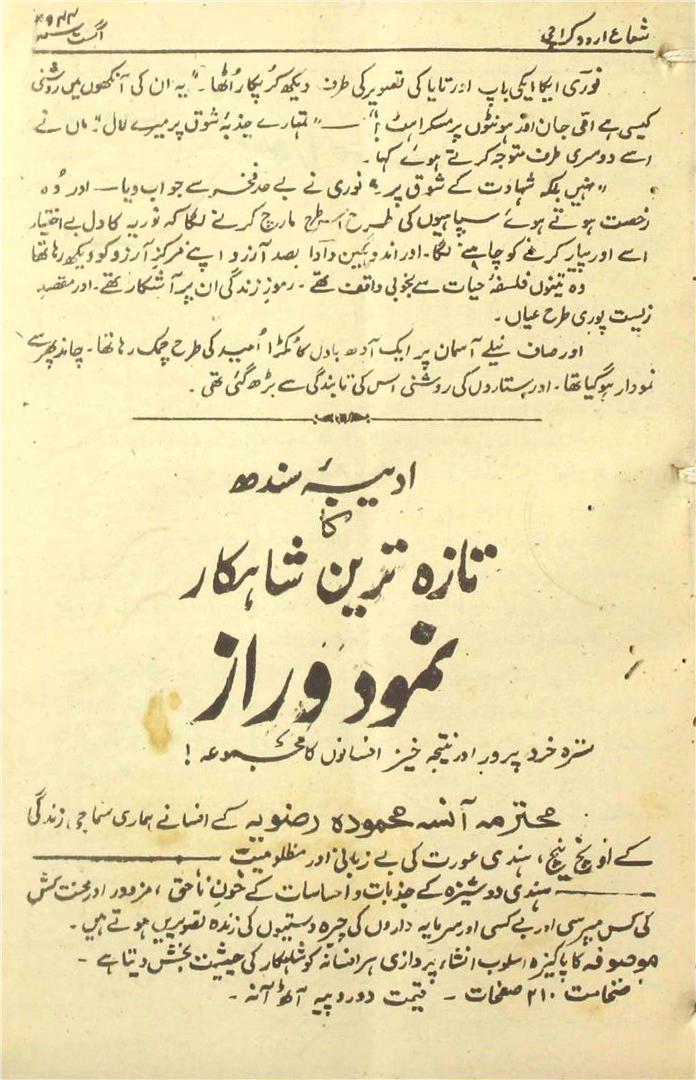 شعاع اردو کراچی
اگست سنہ ۱۹۴۴ء
نوری ایکا ایکی باپ اور تایا کی تصویر کی طرف دیکھ کر پکار اُٹھا۔ "یہ ان کی آنکھوں میں روشنی
کیسی ہے امّی جان اور ہونٹوں پر مسکراہٹ!" — "تمہارے جذبۂ شوق پر میرے لال" ماں نے
اسے دوسری طرف متوجہ کرتے ہوئے کہا۔
"نہیں بلکہ شہادت کے شوق پر" نوری نے بے حد فخر سے جواب دیا — اور وُہ
رخصت ہوتے ہوئے سپاہیوں کی طرح اسطرح مارچ کرنے لگا کہ نوریہ کا دل بے اختیار
اسے اور پیار کرنے کو چاہنے لگا۔ اور اندوہگین دادا بصد آرزو اپنے مرکز آرزو کو دیکھ رہا تھا
وہ تینوں فلسفۂ حیات سے بخوبی واقف تھے۔ رموزِ زندگی ان پر آشکار تھے۔ اور مقصدِ
زیست پوری طرح عیاں۔
اور صاف نیلے آسمان پر ایک آدھ بادل کا ٹکڑا اُمید کی طرح چمک رہا تھا۔ چاند پھر سے
نمودار ہو گیا تھا۔ اور ستاروں کی روشنی اس کی تابندگی سے بڑھ گئی تھی۔
ادیبۂ سندھ
کا
تازہ ترین شاہکار
نمود و راز
سترہ خرد پرور اور نتیجہ خیز افسانوں کا مجموعہ!
محترمہ آنسہ محمودہ رضویہ کے افسانے ہماری سماجی زندگی
کے اونچ نیچ، ہندی عورت کی بے زبانی اور مظلومیت
ہندی دوشیزہ کے جذبات و احساسات کے خونِ ناحق، مزدور اور محنت کش
کی کس مپرسی اور بے کسی اور سرمایہ داروں کی چیرہ دستیوں کی زندہ تصویریں ہوتے ہیں۔
موصوفہ کا پاکیزہ اسلوب انشاء پردازی ہر افسانہ کو شاہکار کی حیثیت بخش دیتا ہے۔
ضخامت ۲۱۰ صفحات۔ قیمت دو روپیہ آٹھ آنہ۔